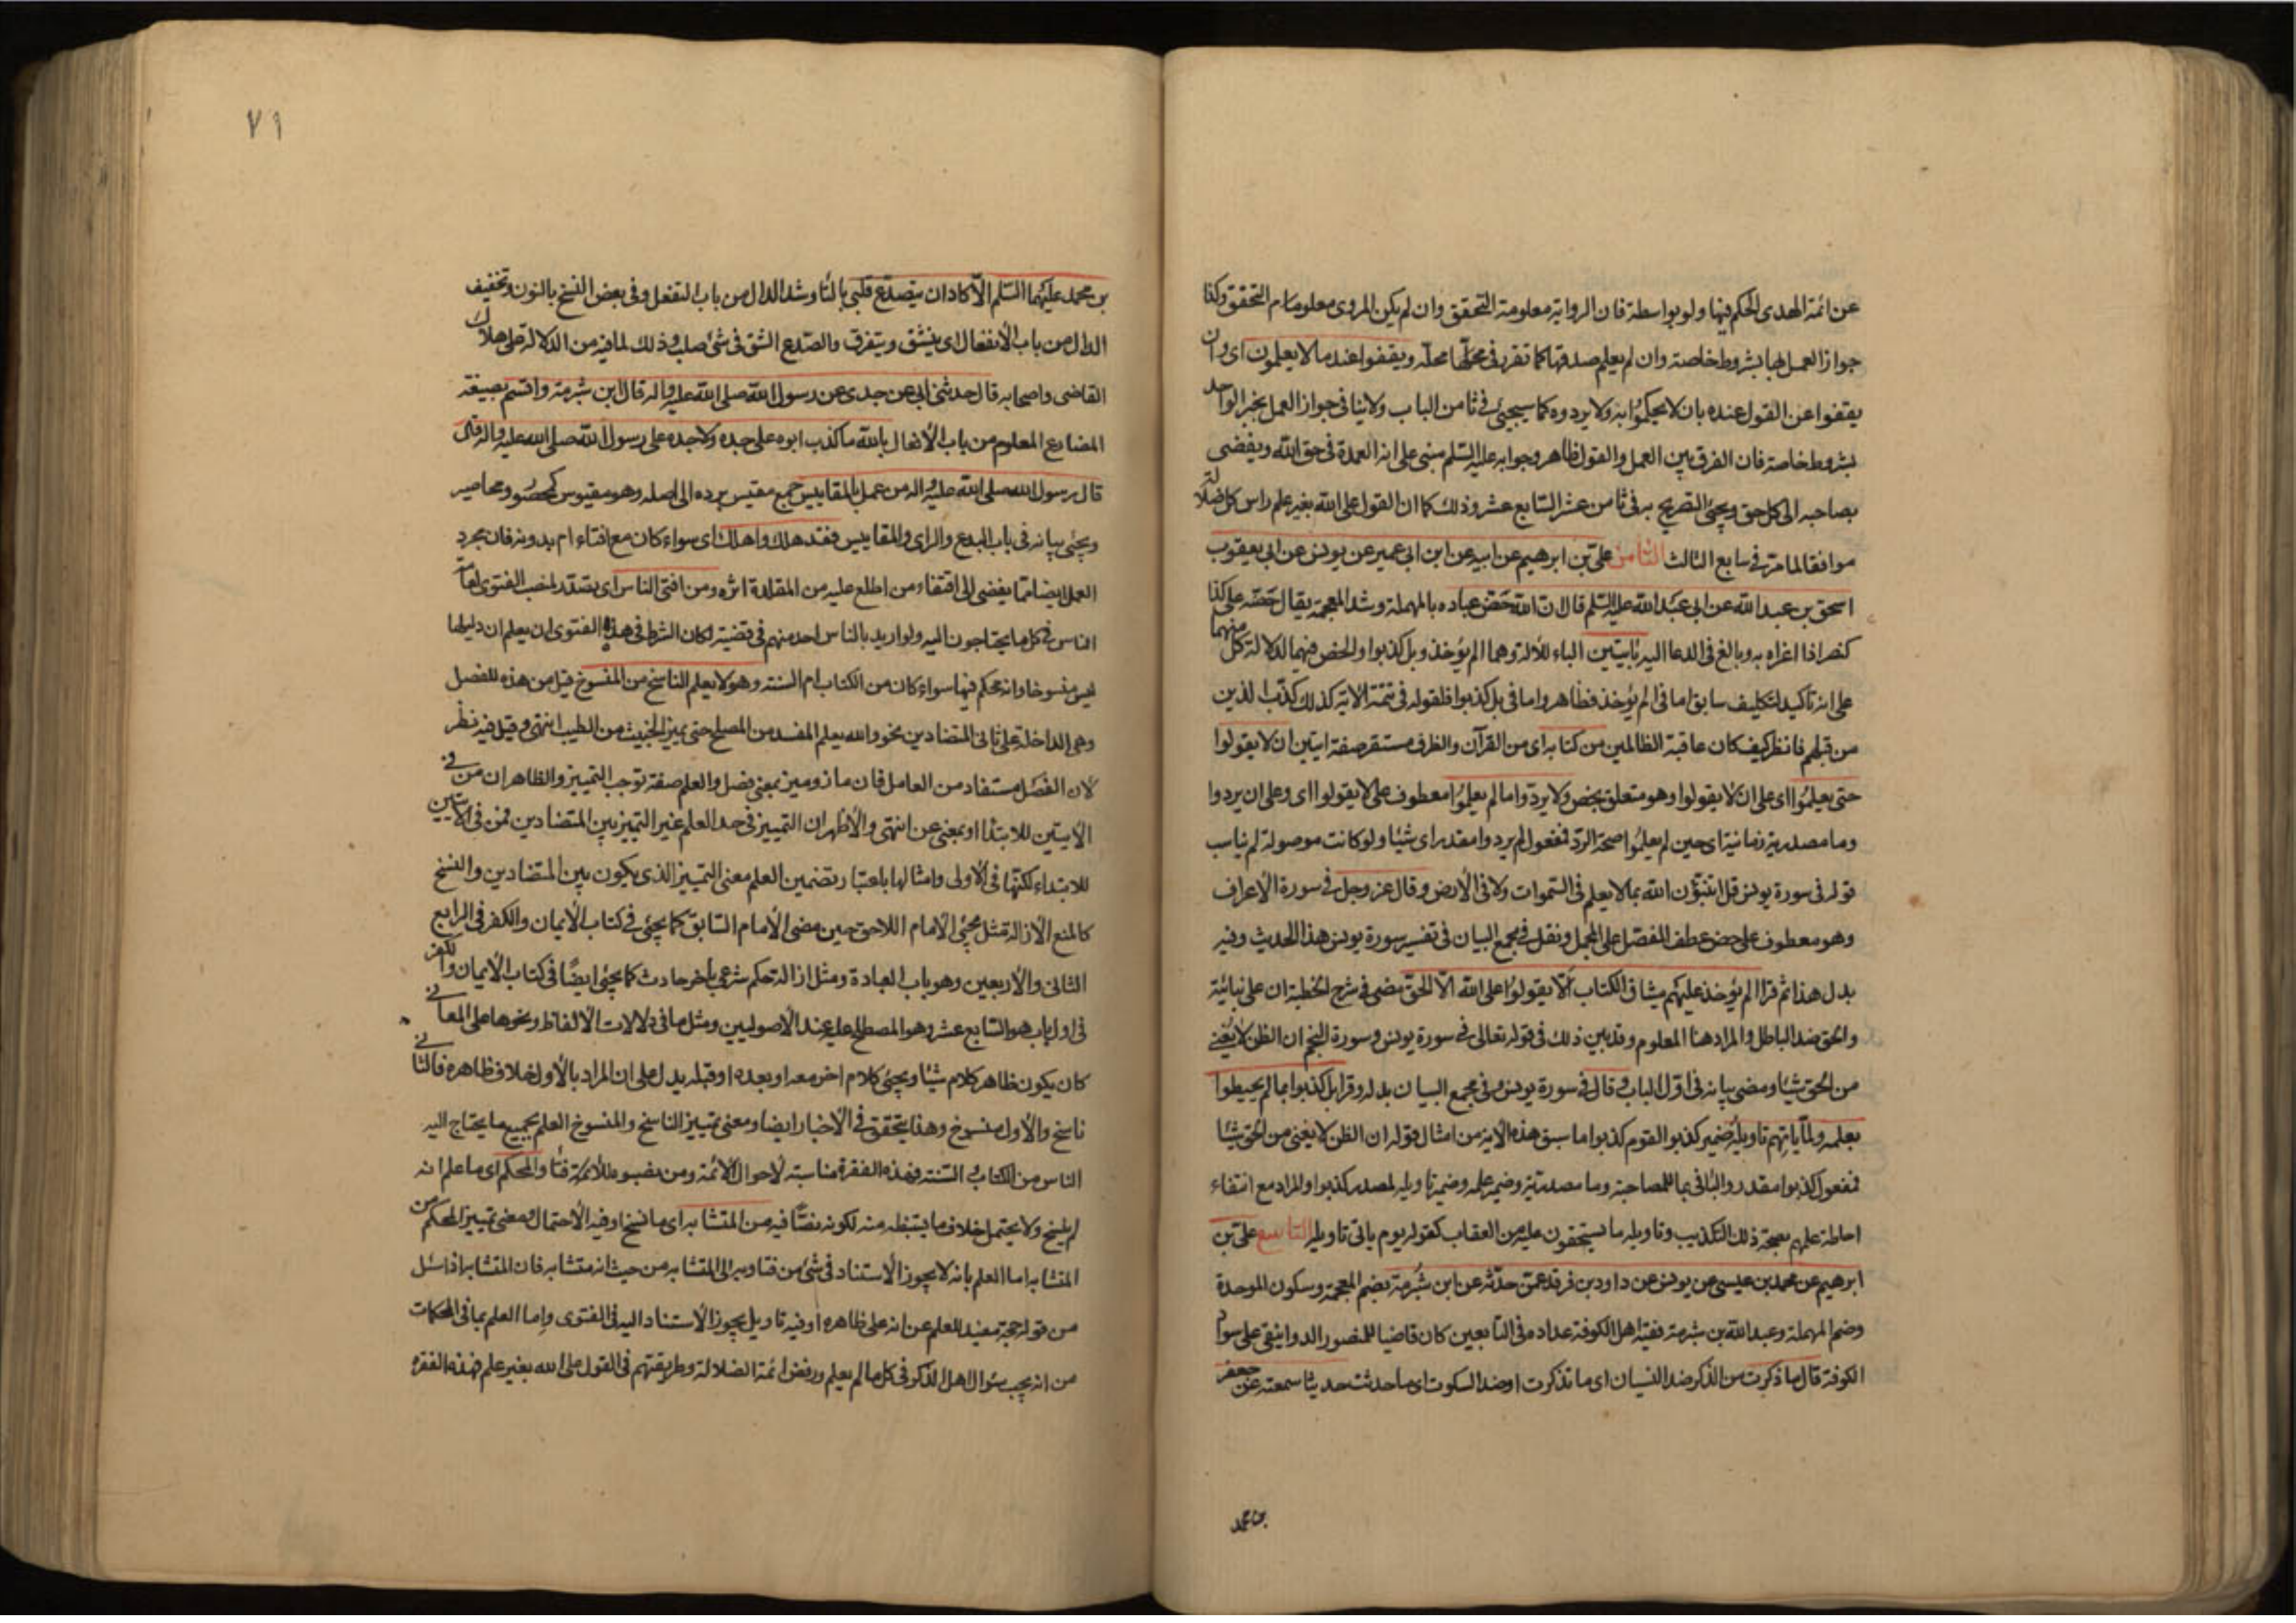 عن ائمة الهدى الحكم فيها ولو بواسطة فان الرواية معلومة التحقق وان لم يكن المروى معلوما م التحقق وكذا
جواز العمل بها بشروط خاصة وان لم يعلم صدقها كما تقرر في محلها محله ويقفوا عند ما لا يعلمون اى وان
يقفوا عن القول عنده بان لا يحكموا به ولا يردوه كما سيجيئ في ثامن الباب ولا ينافى جواز العمل بخبر الواحد
بشروط خاصة فان الفرق بين العمل والقول ظاهر وجوابه عليه السلم مبنى على انه العمدة في حق الله ويفضى
بصاحبه الى كل حق ويجيئ التصريح به في ثامن عشر السابع عشر وذلك كما ان القول على الله بغير علم راس كل ضلالة
موافقا لما مر في سابع الثالث الثامن على بن ابرهيم عن ابيه عن ابن ابى عمير عن يونس عن ابى يعقوب
اسحق بن عبد الله عن ابى عبد الله عليه السلم قال ان الله حض عباده بالمهملة وشد المعجمة يقال حضه على كذا
كنصر اذا اغراه به وبالغ في الدعا اليه بايتين الباء للآلة وهما الم يؤخذ وبل كذبوا والحض فيهما لدلالة كل منهما
على انه تاكيد لتكليف سابق اما في الم يؤخذ فظاهر واما في بل كذبوا فلقوله في تتمة الآية كذلك كذب الذين
من قبلهم فانظر كيف كان عاقبة الظالمين من كتابه اى من القرآن والظرف مستقر صفة ايتين ان لا يقولوا
حتى يعلموا اى على ان لا يقولوا وهو متعلق بحض ولا يردوا ما لم يعلموا معطوف على لا يقولوا اى وعلى ان يردوا
وما مصدرية زمانية اى حين لم يعلموا صحة الرد فمفعول لم يردوا مقدر اى شيئا ولو كانت موصولة لم يناسب
قوله في سورة يونس قل اتنبؤن الله بما لا يعلم في السموات ولا في الارض وقال عز وجل في سورة الاعراف
وهو معطوف على حض عطف المفصل على المجمل ونقل في مجمع البيان في تفسير سورة يونس هذا الحديث وفيه
بدل هذا ثم قرا الم يؤخذ عليهم ميثاق الكتاب الا يقولوا على الله الا الحق مضى في شرح الخطبة ان على نبائية
والحق ضد الباطل والمراد هنا المعلوم وقد بين ذلك في قوله تعالى في سورة يونس وسورة النجم ان الظن لا يغنى
من الحق شيئا ومضى بيانه في اول الباب وقال في سورة يونس وفي مجمع البيان بدله وقرا بل كذبوا بما لم يحيطوا
بعلمه ولما ياتهم تاويله ضمير كذبوا لقوم كذبوا ما سبق هذه الآية من امثال قوله ان الظن لا يغنى من الحق شيئا
فمفعول كذبوا مقدر والبا في بما للمصاحبة وما مصدرية وضمير علمه وضمير تاويله لمصدر كذبوا والمراد مع انتفاء
احاطة علمهم بصحة ذلك التكذيب وتاويله ما يستحقون عليه من العقاب كقوله يوم ياتى تاويله التاسع على بن
ابرهيم عن محمد بن عيسى عن يونس عن داود بن فرقد عمن حدثه عن ابن شبرمة بضم المعجمة وسكون الموحدة
وضم المهملة وعبد الله بن شبرمة فقيه اهل الكوفة عداده في التابعين كان قاضيا للمنصور الدوانيقى على سواد
الكوفة قال ما ذكرت من الذكر ضد النسيان اى ما تذكرت او ضد السكوت اى ما حدثت حديثا سمعته عن جعفر
بن محمد
٧١
بن محمد عليهما السلم الا كاد ان يتصدع قلبى بالتا وشد الدال من باب التفعل وفي بعض النسخ بالنون وتخفيف
الدال من باب الانفعال اى ينشق ويتفرق والصدع الشق في شئ صلب وذلك لما فيه من الدلالة على هلاك
القاضى واصحابه قال حدثنى ابى عن جدى عن رسول الله صلى الله عليه واله قال ابن شبرمة واقسم بصيغة
المضارع المعلوم من باب الافعال بالله ما كذب ابوه على جده ولا جده على رسول الله صلى الله عليه واله قال
قال رسول الله صلى الله عليه واله من عمل بالمقاييس جمع مقيس برده الى اصله وهو مقيوس كمحصور ومحاصير
ويجيئ بيانه في باب البدع والراى والمقاييس فقد هلك واهلك اى سواء كان مع افتاء ام بدونه فان مجرد
العمل ايضا مما يفضى الى اقتفاء من اطلع عليه من المقلدة اثره ومن افتى الناس اى تصدر لمنصب الفتوى لعامة
الناس في كل ما يحتاجون اليه ولو اريد بالناس احد منهم في قضية لكان الشرط في هذه الفتوى ان يعلم ان دليلها
ليس منسوخا وانه محكم فيها سواء كان من الكتاب ام السنة وهو لا يعلم الناسخ من المنسوخ قيل من هذه للفصل
وهى الداخلة على ثانى المتضادين نحو والله يعلم المفسد من المصلح حتى يميز الخبيث من الطيب انتهى وقيل فيه نظر
لان الفصل مستفاد من العامل فان ماز وميز بمعنى فصل والعلم صفة توجب التمييز والظاهر ان من في
الآيتين للابتدا او بمعنى عن انتهى والاظهر ان التمييز في حد العلم غير التمييز بين المتضادين فمن في الايتين
للابتداء لكنها في الاولى وامثالها باعتبار تضمين العلم معنى التمييز الذى يكون بين المتضادين والنسخ
كالمنع الازالة مثل مجيئ الامام اللاحق حين مضى الامام السابق كما يجيئ في كتاب الايمان والكفر في الرابع
الثانى والاربعين وهو باب العبادة ومثل ازالة حكم شرعى باخر حادث كما يجيئ ايضا في كتاب الايمان والكفر
في اول باب هو السابع عشر وهو المصطلح عليه عند الاصوليين ومثل ما في دلالات الالفاظ ونحوها على المعانى
كان يكون ظاهر كلام شيئا ويجيئ كلام اخر معه او بعده او قبله يدل على ان المراد بالاول خلاف ظاهره فالثانى
ناسخ والاول منسوخ وهذا يتحقق في الاخبار ايضا ومعنى تمييز الناسخ والمنسوخ العلم بجميع ما يحتاج اليه
الناس من الكتاب والسنة فهذه الفقرة مناسبة لاحوال الائمة ومن نصبوه للافتاء والمحكم اى ما علم انه
لم ينسخ ولا يحتمل خلاف ما يستنبط منه لكونه نصا فيه من المتشابه اى ما نسخ او فيه الاحتمال ومعنى تمييز المحكم من
المتشابه اما العلم بانه لا يجوز الاستناد في شئ من فتاويه الى المتشابه من حيث انه متشابه فان المتشابه اذا سئل
من قوله حجة مفيد للعلم عن انه على ظاهره او فيه تاويل يجوز الاستناد اليه في الفتوى واما العلم بما في المحكمات
من انه يجب سئوال اهل الذكر في كل ما لم يعلم ورفض ائمة الضلالة وطريقتهم في القول على الله بغير علم فهذه الفقرة